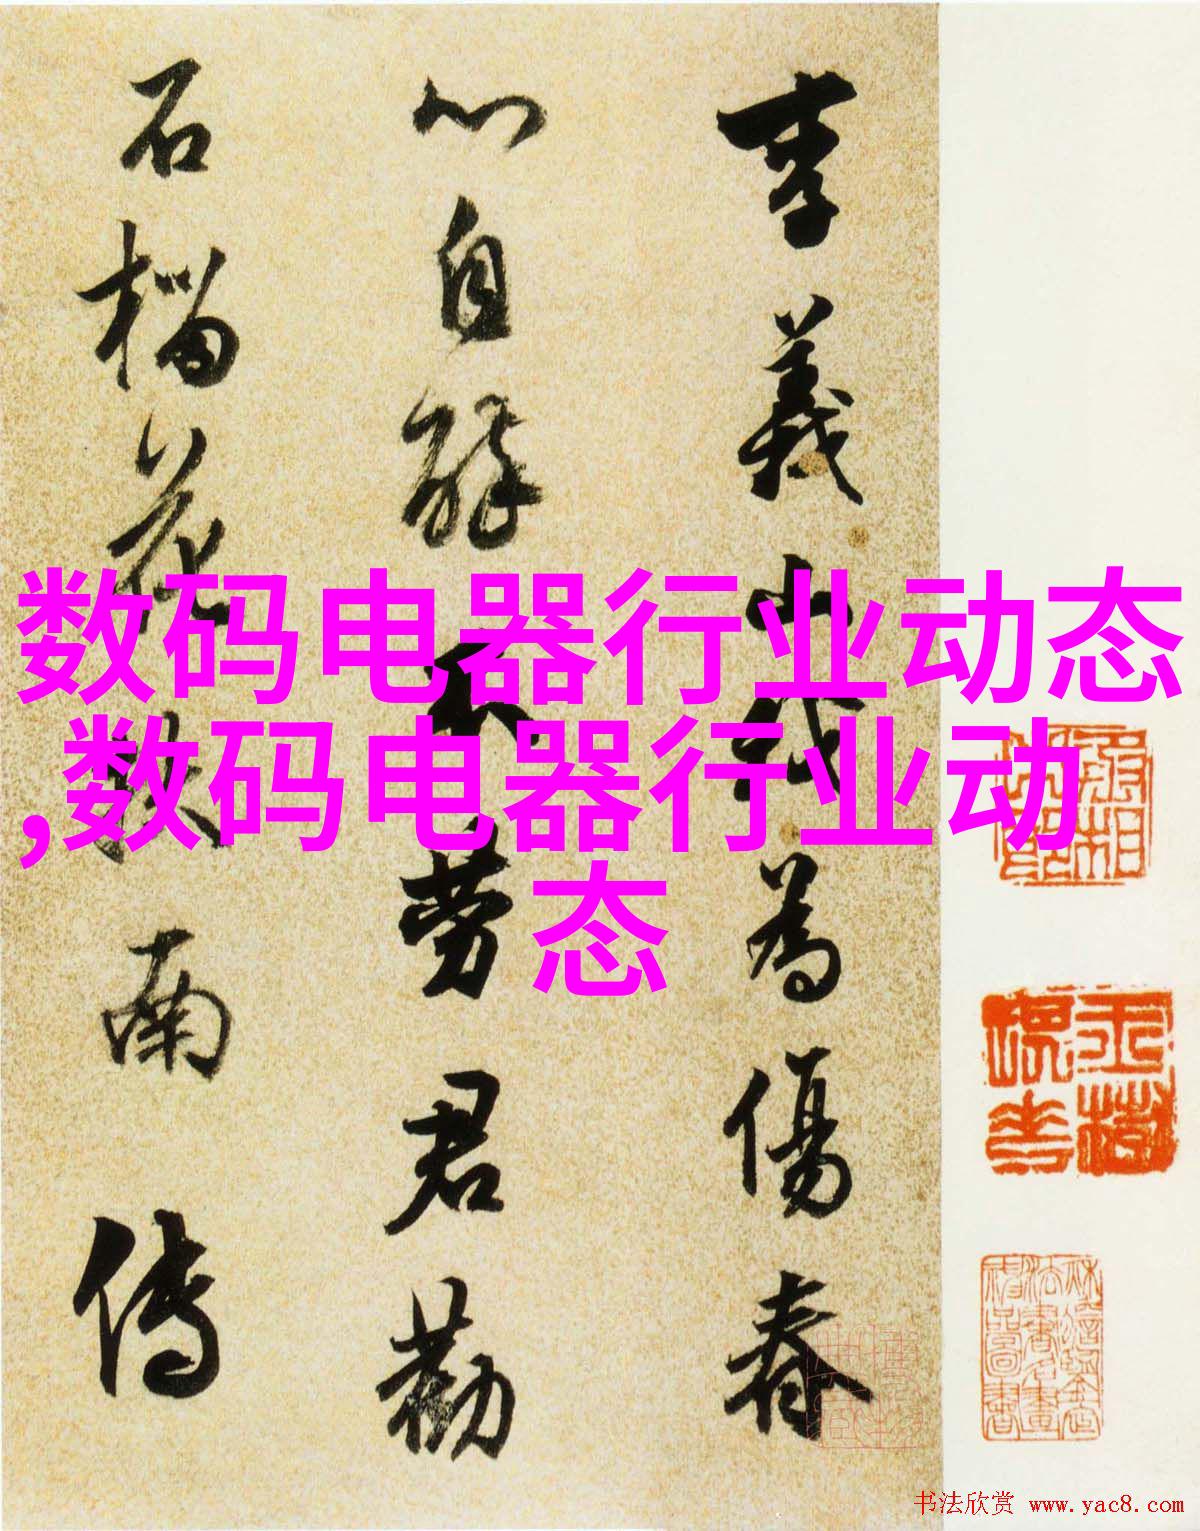 李義山為傷春
心自醉不勞君勸
石榴花扶南傳
数码电器行业动态
,数码电器行业动
态
书法欣赏 www.yac8.com